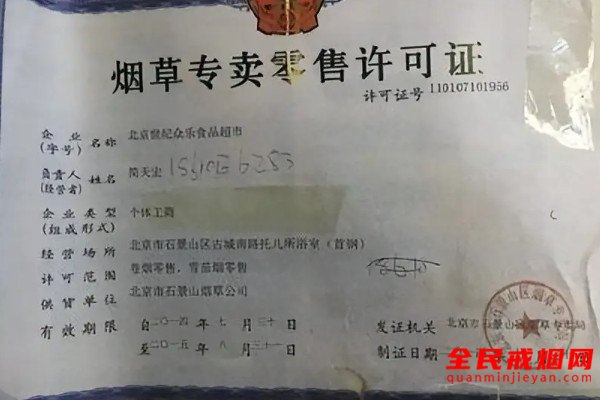 烟草专卖零售许可证
许可证号 110107101956
企业(字号)名称 北京世纪众乐食品超市
负责人(经营者)姓名 简天宏
企业类型(组成形式) 个体工商
经营场所 北京市石景山区古城南路托儿所浴室（首钢）
许可范围 卷烟零售，雪茄烟零售
供货单位 北京市石景山烟草公司
有效期限 自二〇一四年七月三十一日
至二〇一五年八月三十一日
发证机关 北京市石景山区烟草专卖局
制证日期
全民戒烟网
quanminjieyan.com